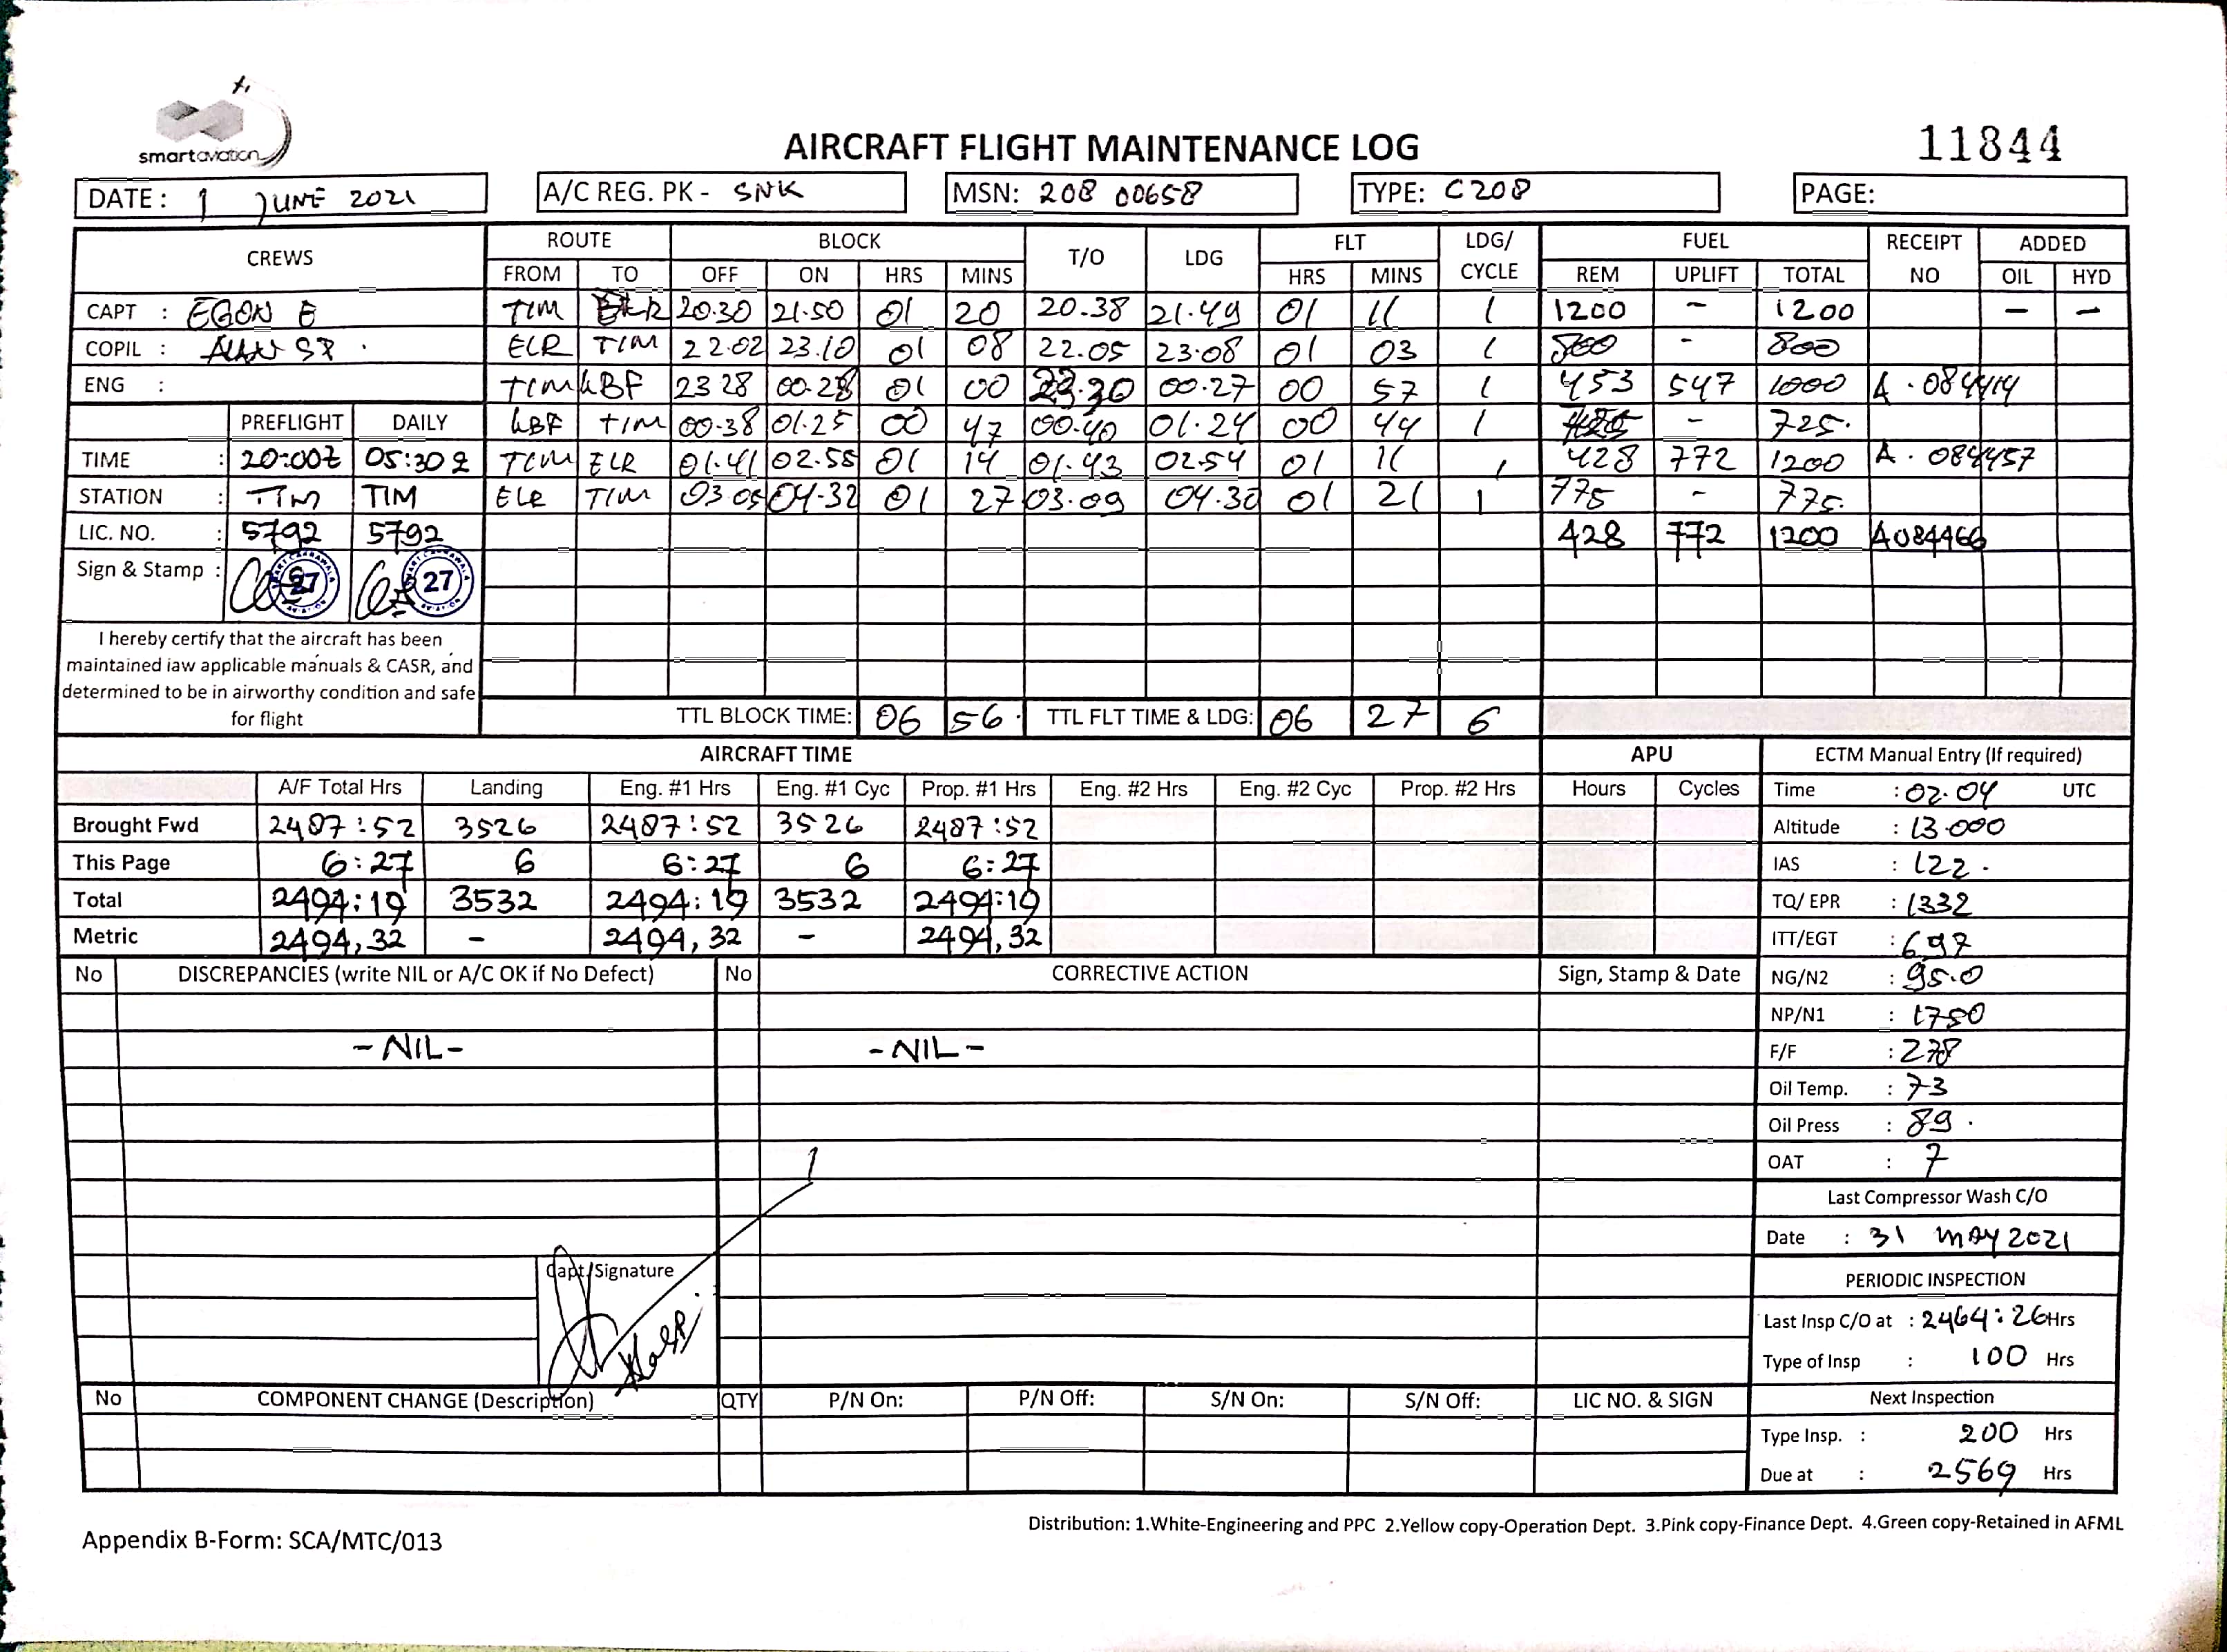 smartaviation
AIRCRAFT FLIGHT MAINTENANCE LOG
11844
DATE : 1 JUNE 2021
A/C REG. PK - SNK
MSN: 208 00658
TYPE: C208
PAGE:
CREWS ROUTE BLOCK T/O LDG FLT LDG/ CYCLE FUEL RECEIPT NO ADDED
FROM TO OFF ON HRS MINS HRS MINS REM UPLIFT TOTAL OIL HYD
CAPT : EGON E TIM 20.30 21.50 01 20 20.38 21.49 01 11 1 1200 - 1200 - -
COPIL : ELR TIM 22.02 23.10 01 08 22.05 23.08 01 03 1 800 - 800
ENG : TIM KBF 23 28 00.28 01 00 23.30 00.27 00 57 1 453 547 1000 A. 084414
PREFLIGHT DAILY KBF TIM 00.38 01.25 00 47 00.40 01.24 00 44 1 - 725.
TIME : 20:00Z 05:30Z TIM ELR 01.41 02.55 01 14 01.43 02.54 01 11 1 428 772 1200 A. 084457
STATION : TIM TIM ELR TIM 03.05 04.32 01 27 03.09 04.30 01 21 1 775 - 775.
LIC. NO. : 5792 5792 428 772 1200 A084466
Sign & Stamp : 27 27
I hereby certify that the aircraft has been
maintained iaw applicable manuals & CASR, and
determined to be in airworthy condition and safe
for flight
TTL BLOCK TIME: 06 56. TTL FLT TIME & LDG: 06 27 6
AIRCRAFT TIME APU ECTM Manual Entry (If required)
A/F Total Hrs Landing Eng. #1 Hrs Eng. #1 Cyc Prop. #1 Hrs Eng. #2 Hrs Eng. #2 Cyc Prop. #2 Hrs Hours Cycles Time : 02.04 UTC
Brought Fwd 2487:52 3526 2487:52 3526 2487:52 Altitude : 13.000
This Page 6:27 6 6:27 6 6:27 IAS : 122.
Total 2494:19 3532 2494:19 3532 2494:19 TQ/ EPR : 1332
Metric 2494,32 - 2494,32 - 2494,32 ITT/EGT : 697
No DISCREPANCIES (write NIL or A/C OK if No Defect) No CORRECTIVE ACTION Sign, Stamp & Date NG/N2 : 95.0
NP/N1 : 1750
-NIL- -NIL- F/F : 278
Oil Temp. : 73
Oil Press : 89.
OAT : 7
Last Compressor Wash C/O
Date : 31 MAY 2021
Capt/Signature
PERIODIC INSPECTION
Last Insp C/O at : 2464:26 Hrs
Type of Insp : 100 Hrs
No COMPONENT CHANGE (Description) QTY P/N On: P/N Off: S/N On: S/N Off: LIC NO. & SIGN Next Inspection
Type Insp. : 200 Hrs
Due at : 2569 Hrs
Appendix B-Form: SCA/MTC/013
Distribution: 1.White-Engineering and PPC 2.Yellow copy-Operation Dept. 3.Pink copy-Finance Dept. 4.Green copy-Retained in AFML